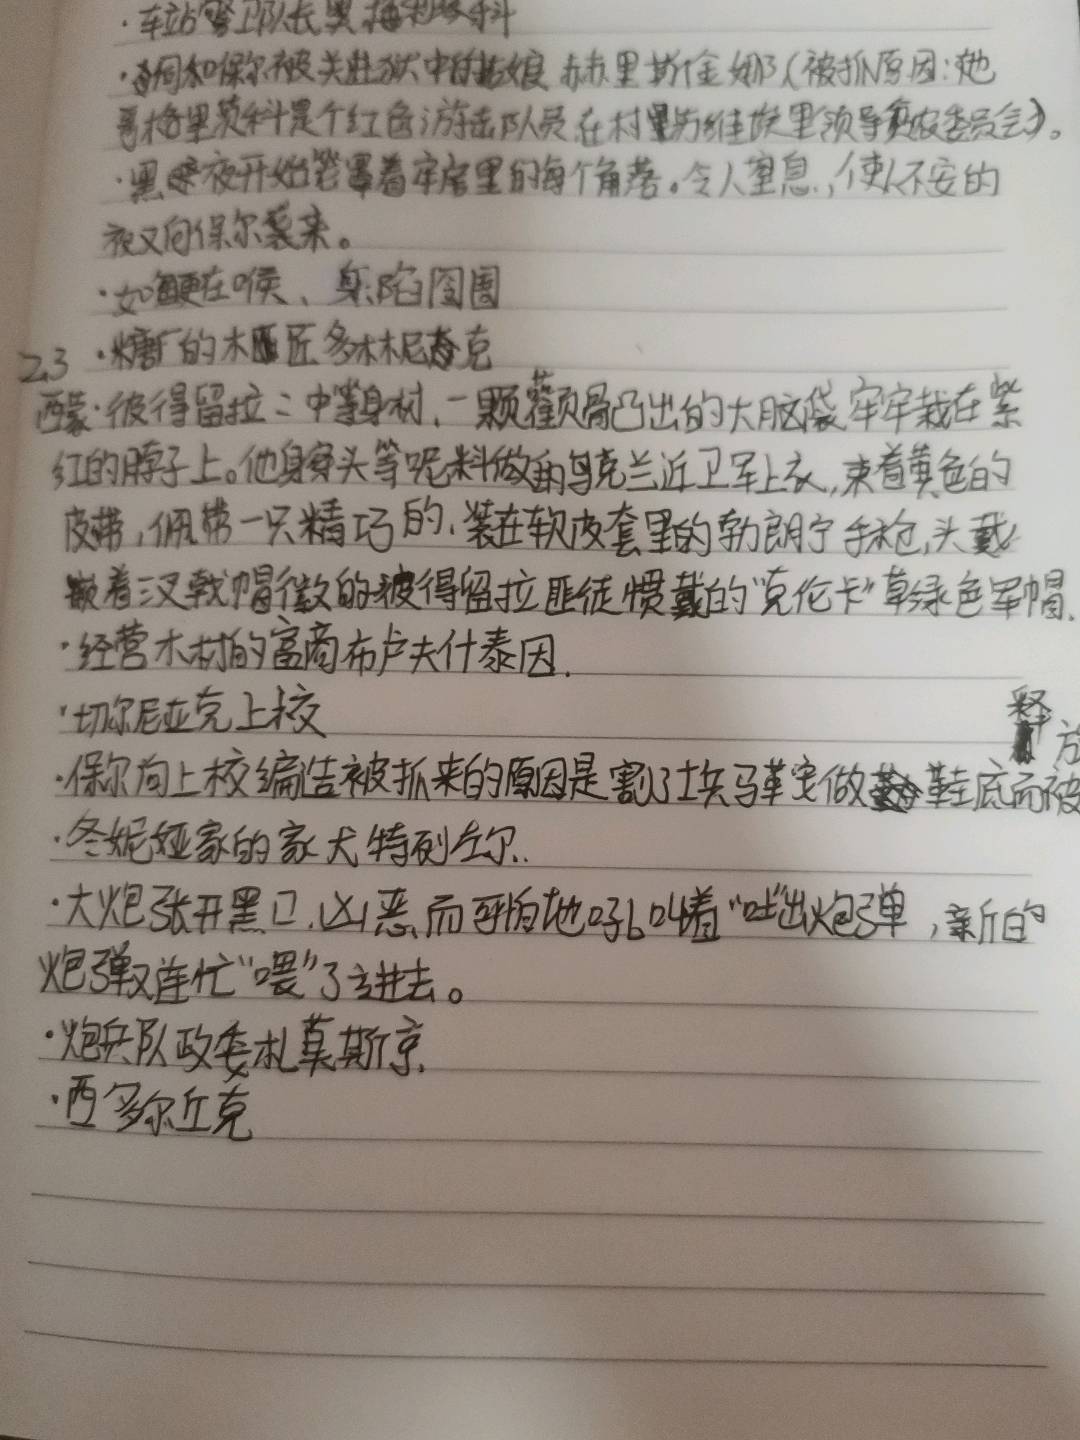 ·车站警卫队长
·同和保尔被关进狱中的姑娘 赫里斯金娜(被抓原因:她
哥格里莫科是个红色游击队员,在村里领导贫农委员会)。
·黑夜开始笼罩着牢房里的每个角落。令人窒息,使人不安的
夜又向保尔袭来。
·如鲠在喉、身陷囹圄
·糖厂的木匠多林尼克
23
西蒙·彼得留拉:中等身材,一颗颧骨凸出的大脑袋牢牢栽在紫
红的脖子上。他身穿头等呢料做的乌克兰近卫军上衣,束着黄色的
皮带,佩带一只精巧的,装在软皮套里的勃朗宁手枪,头戴
嵌着三叉戟帽徽的彼得留拉匪徒惯戴的“克伦卡”草绿色军帽.
·经营木材的富商布卢夫什泰因.
·切尔尼亚克上校
释放
·保尔向上校编造被抓来的原因是割了块马革它做鞋底而被
·冬妮娅家的家犬特列左尔.
·大炮张开黑口,凶恶而可怕地吼叫着“吐”出炮弹,新的
炮弹又连忙“喂”了进去。
·炮兵队政委札莫斯京.
·西多尔丘克